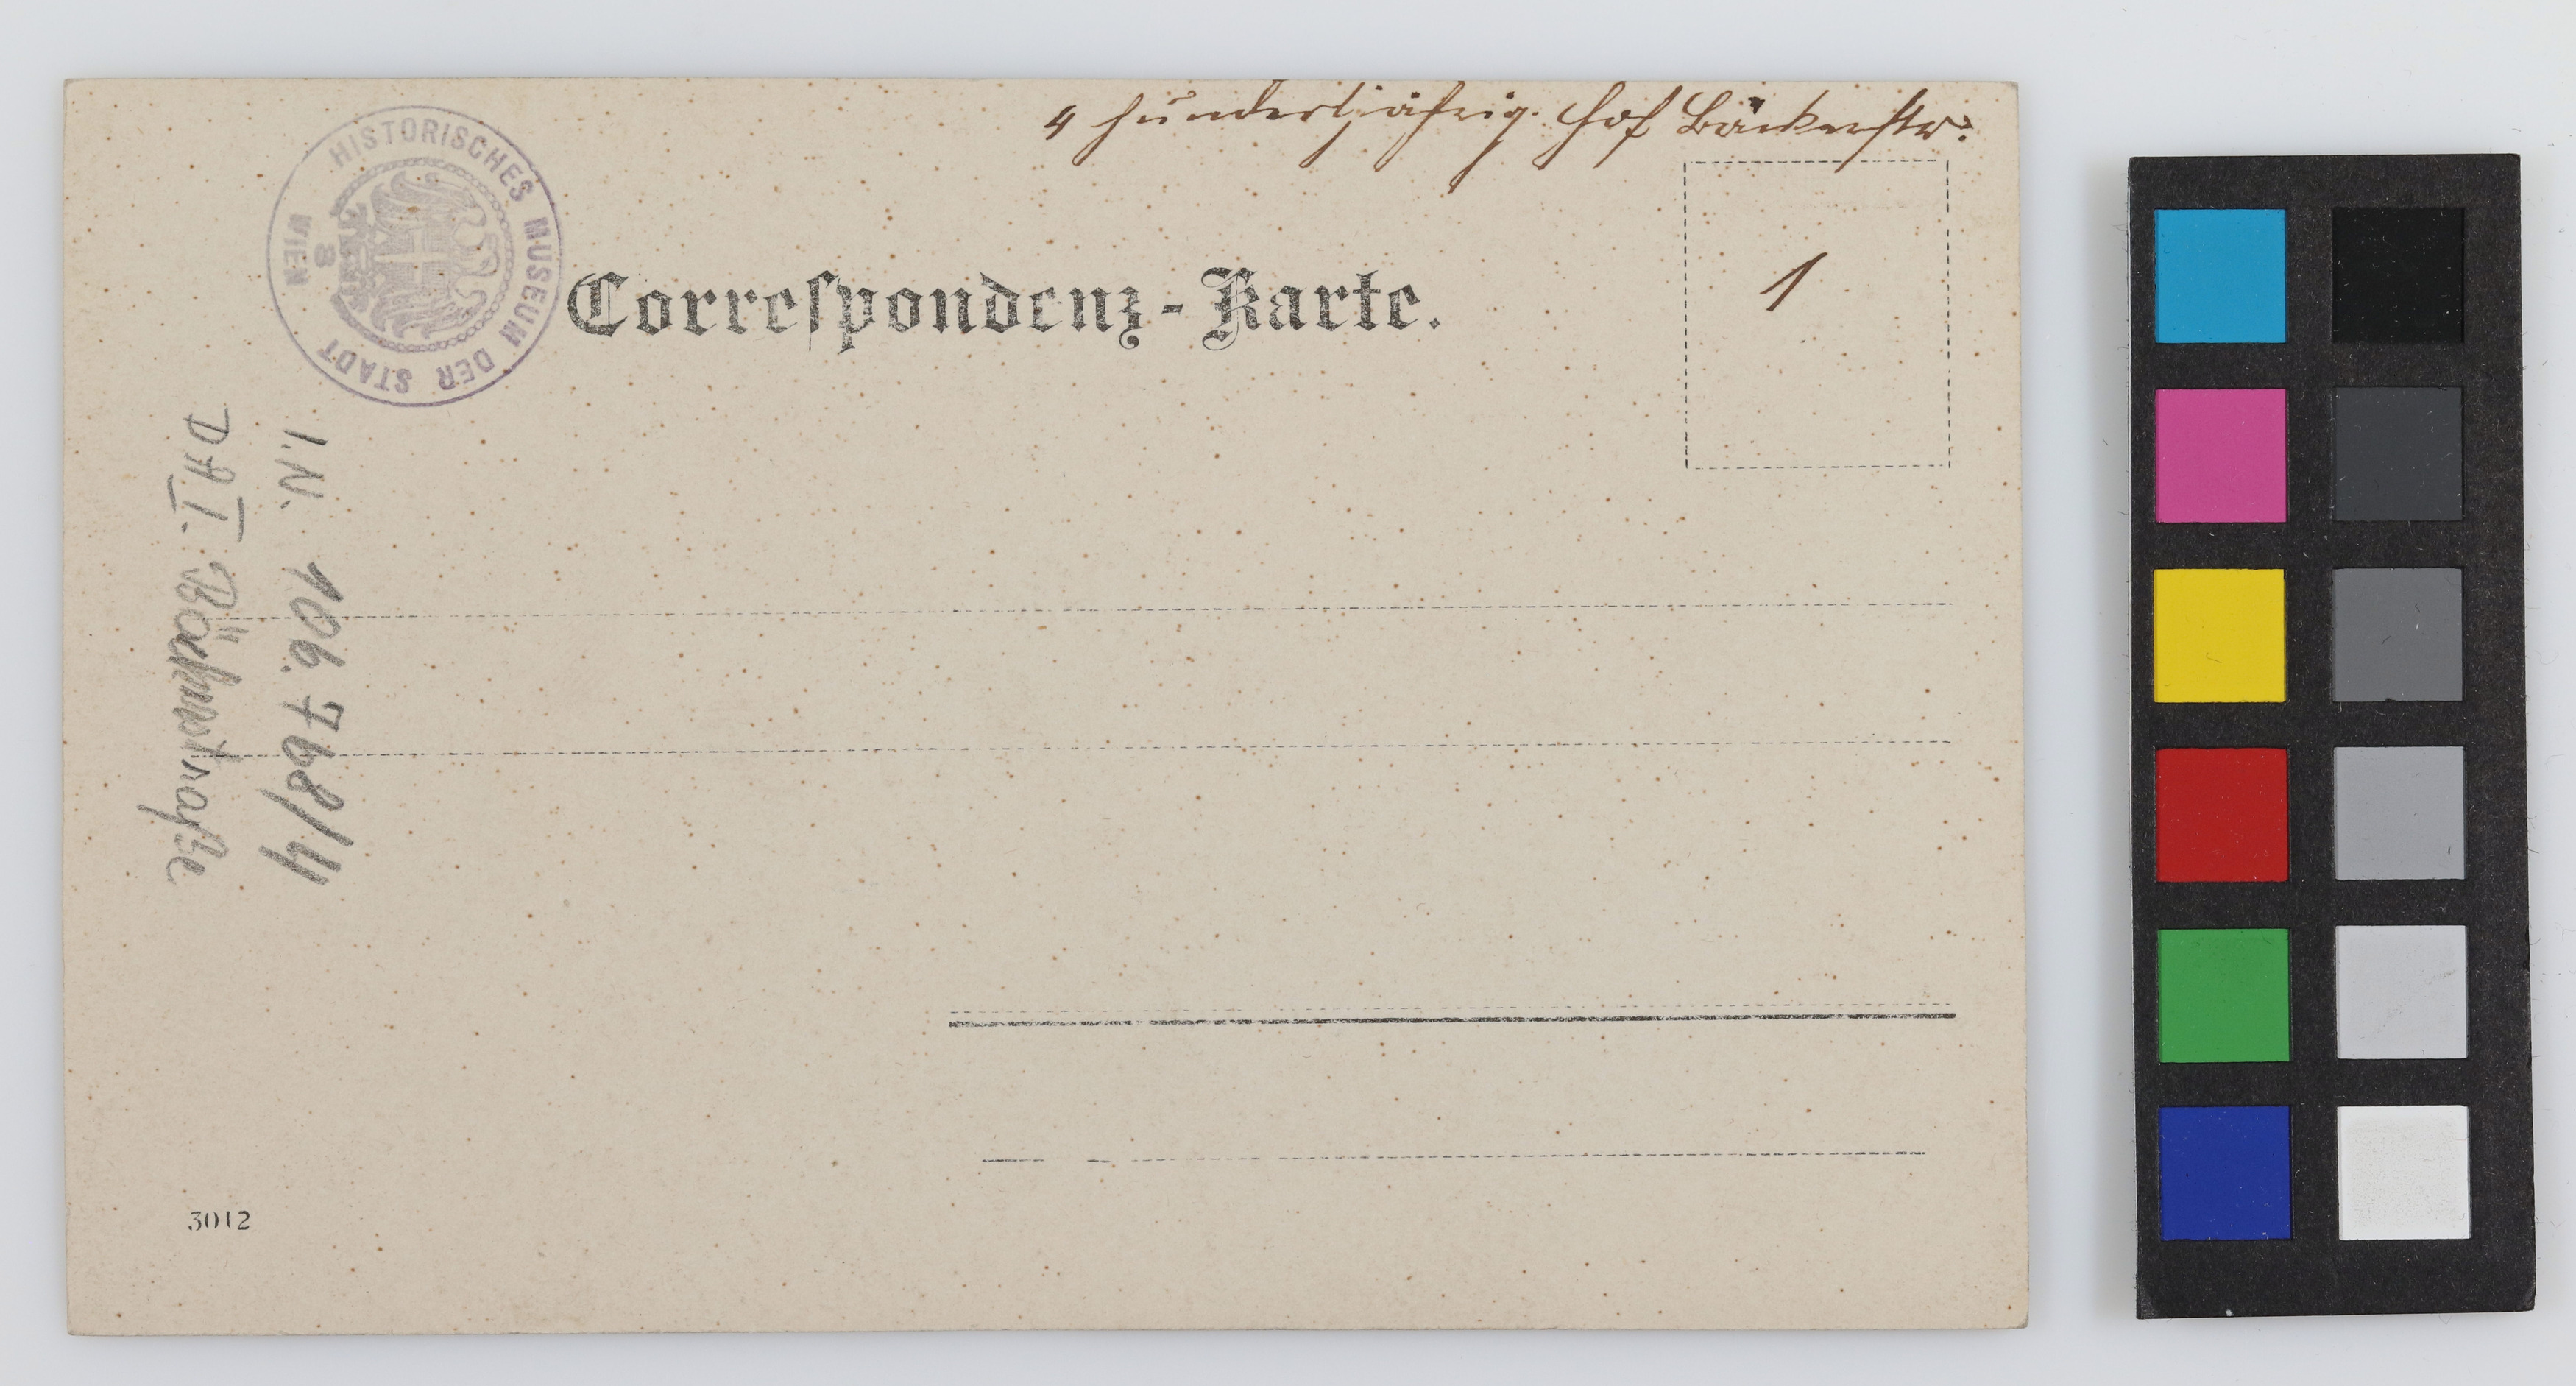 4 hundertjährig. Hof Bäckerstr:
HISTORISCHES MUSEUM DER STADT WIEN
8
Correspondenz-Karte.
1
I.N. 106.768/4
DA I. Bäckerstraße
3012